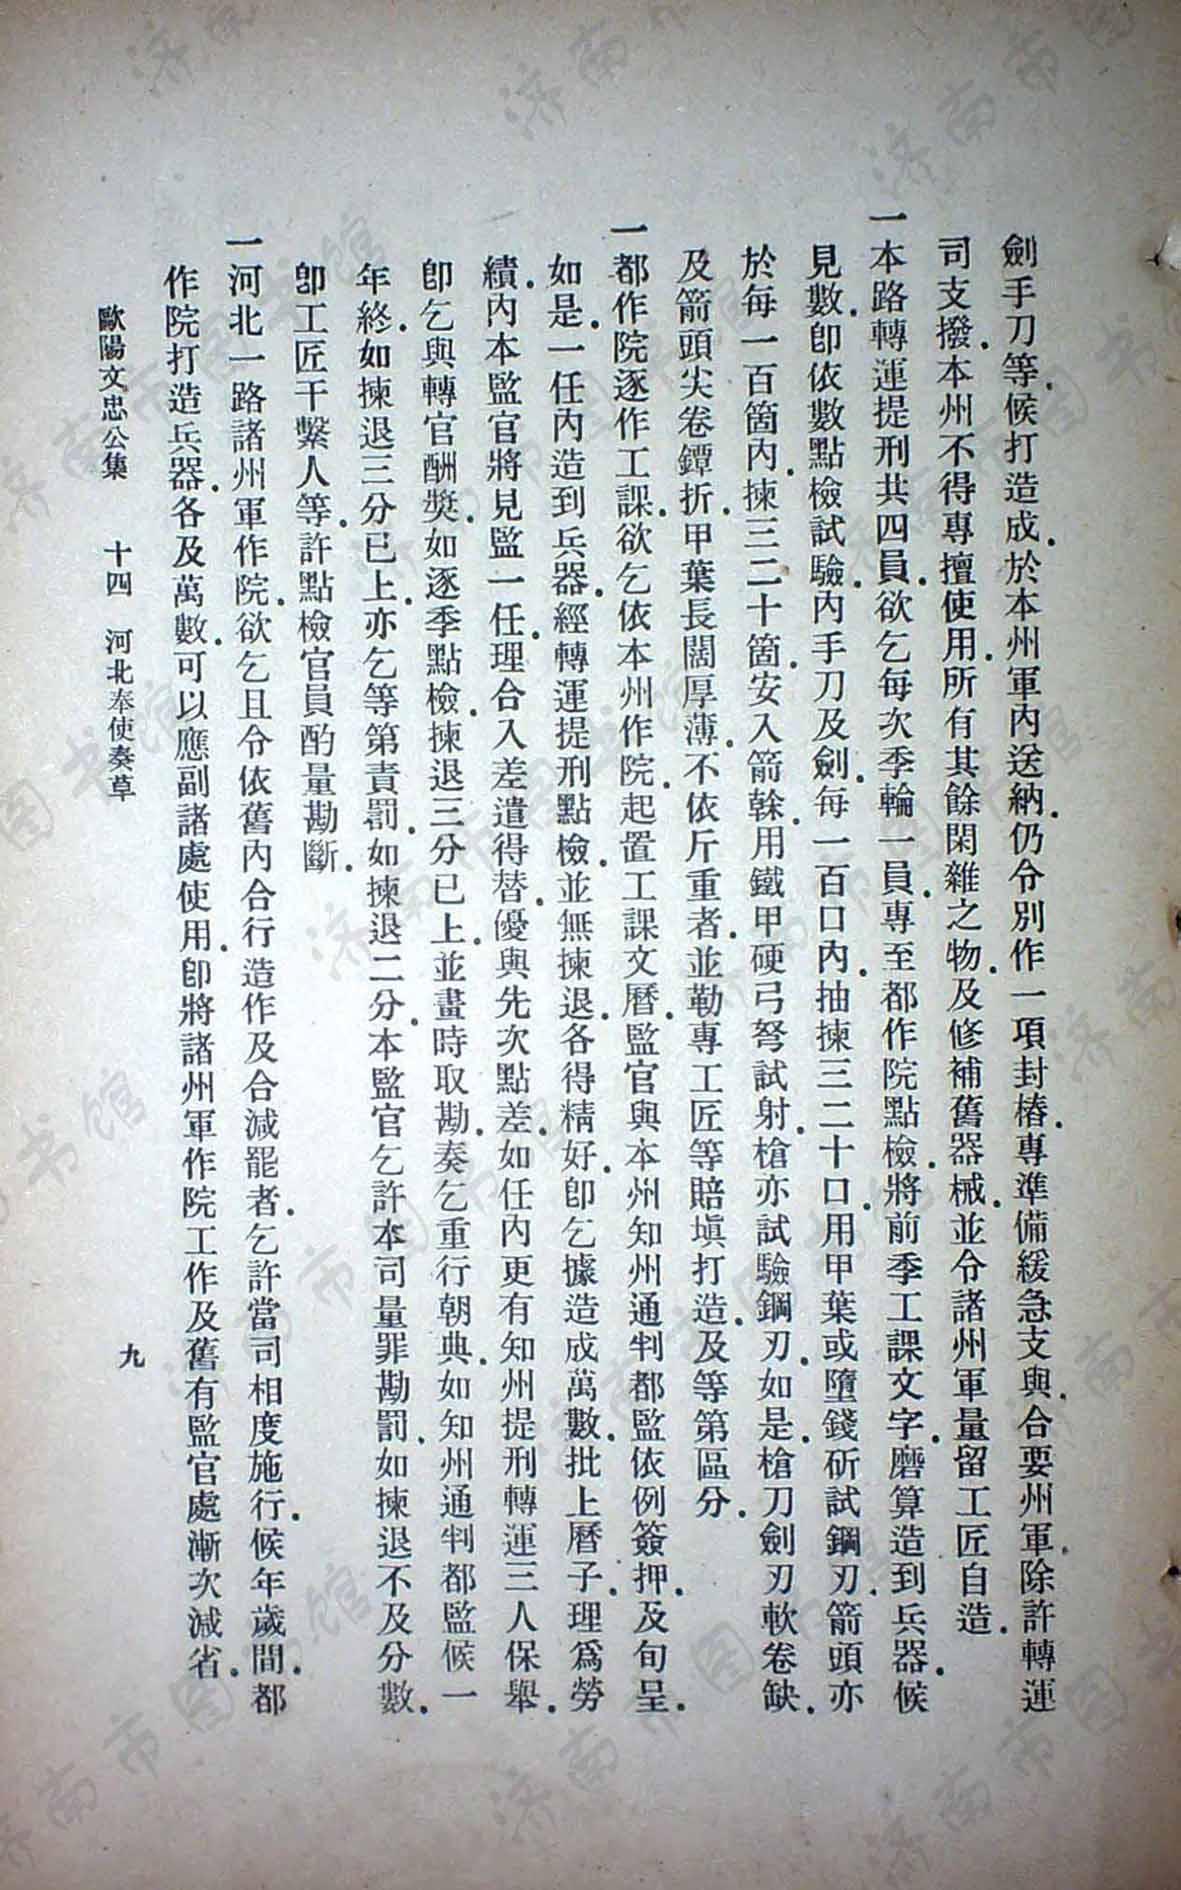 劍手刀等候打造成於本州軍內送納仍令別作一項封樁專準備緩急支與合要州軍除許轉運
司支撥本州不得專擅使用所有其餘閑雜之物及修補舊器械並令諸州軍量留工匠自造
一本路轉運提刑共四員欲乞每次季輪一員專至都作院點檢將前季工課文字磨算造到兵器候
見數卽依數點檢試驗內手刀及劍每一百口內抽揀三二十口用甲葉或墮錢斫試鋼刃箭頭亦
於每一百箇內揀三二十箇安入箭榦用鐵甲硬弓弩試射槍亦試驗鋼刃如是槍刀劍刃軟卷缺
及箭頭尖卷鐔折甲葉長闊厚薄不依斤重者並勒專工匠等賠塡打造及等第區分
一都作院逐作工課欲乞依本州作院起置工課文曆監官與本州知州通判都監依例簽押及旬呈
如是一任內造到兵器經轉運提刑點檢並無揀退各得精好卽乞據造成萬數批上曆子理爲勞
績內本監官將見監一任理合入差遣得替優與先次點差如任內更有知州提刑轉運三人保舉
卽乞與轉官酬獎如逐季點檢揀退三分已上並畫時取勘奏乞重行朝典如知州通判都監候一
年終如揀退三分已上亦乞等第責罰如揀退二分本監官乞許本司量罪勘罰如揀退不及分數
卽工匠干繫人等許點檢官員酌量勘斷
一河北一路諸州軍作院欲乞且令依舊內合行造作及合減罷者乞許當司相度施行候年歲間都
作院打造兵器各及萬數可以應副諸處使用卽將諸州軍作院工作及舊有監官處漸次減省
歐陽文忠公集 十四 河北奉使奏草 九
济南市图书馆